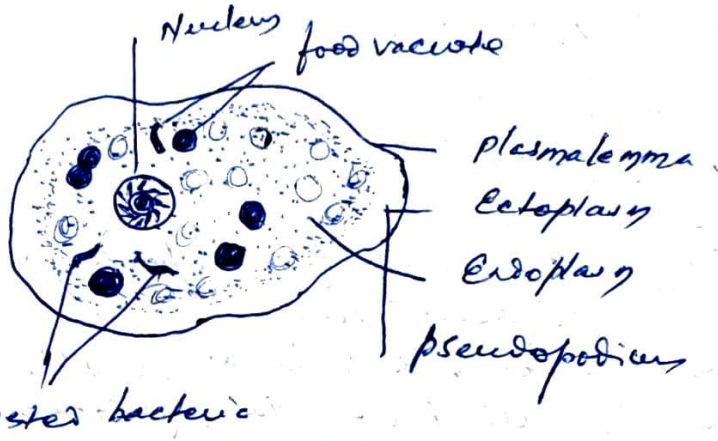 Nucleus
food vacuole
plasmalemma
Ectoplasm
Endoplasm
pseudopodium
sted bacteria